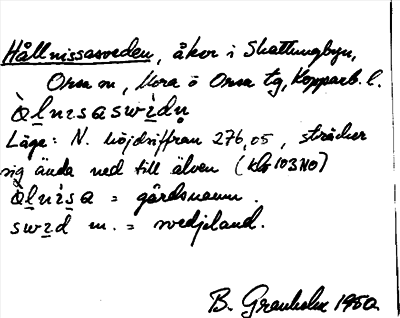 Hållnissasveden, åker i Skattungbyn,
Orsa sn, Mora o Orsa tg, Kopparb. l.
Òl̲nɪsaswɪ̀dn̥
Läge: N. höjdsiffran 276,05, sträcker
sig ända ned till älven (kbl 103 NO)
Òl̲nɪ̀sa = gårdsnamn.
swɪ̲d m. = svedjeland.
B. Granholm 1950